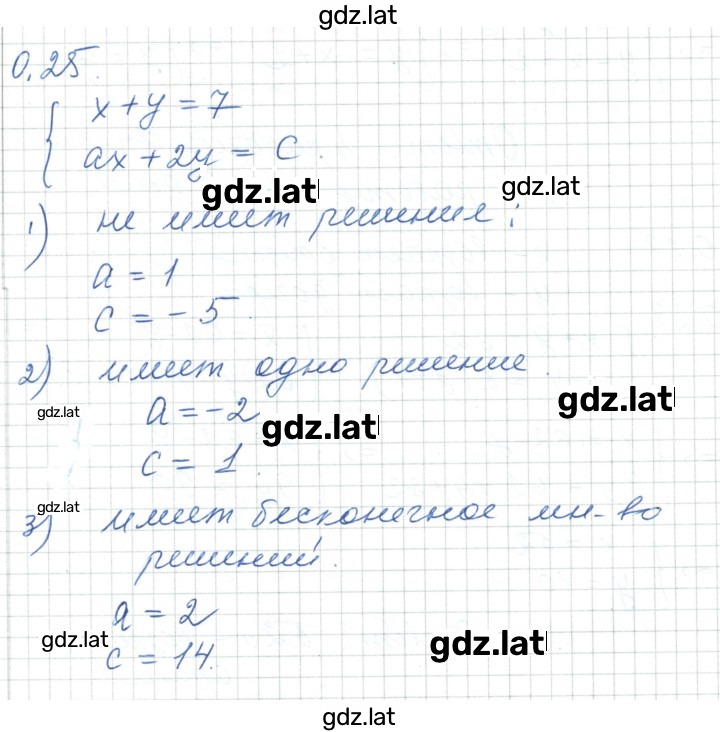 gdz.lat
0.25.
x + y = 7
ax + 2y = c.
gdz.lat
gdz.lat
1) не имеет решения:
a = 1
c = - 5.
2) имеет одно решение.
gdz.lat
a = - 2
gdz.lat
gdz.lat
c = 1.
gdz.lat
3) имеет бесконечное мн-во
решений.
a = 2
gdz.lat
gdz.lat
c = 14.
gdz.lat